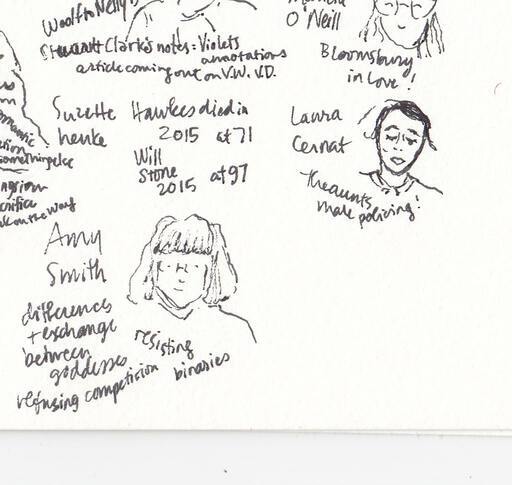 Woolf to Nelly's
Stewart Clark's notes: Violet's
annotations
article coming out on V.W. V.D.
O'Neill
Bloomsbury
in love!
Suzette
henke
Hawkes died in
2015 at 71
Will
Stone at 97
2015
Laura
Cernat
The aunts
male policing!
something else
critica
on the way
Amy
Smith
differences
+ exchange
between
goddesses
refusing competition
resisting
binaries